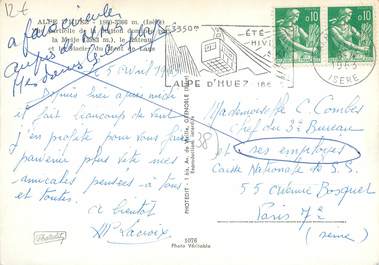 12 F
à faire circuler
Auprès de
Mes dames
ALPE D'HUEZ - 1860-3350 m. (Isère)
la Meije (3983 m.), le Râteau
et le Glacier du Mont de Lans
le 5 avril 1963
Depuis hier après midi il
fait beaucoup de vent
j'en profite pour vous faire
parvenir plus vite mes
amicales pensées à vous
et toutes.
à bientôt
M Lacroix
Photedit
5076
Photo Véritable
PHOTEDIT - 3 bis, Av. de Vizille, GRENOBLE (Isère)
Reproduction interdite
3350m
ÉTÉ
HIVER
ALPE D'HUEZ
ISERE
0,10
0,10
Mademoiselle C. Combes
Chef du 3e Bureau
et ses employés
38
Caisse Nationale de S.S.
55 avenue Bosquet
Paris 7e
(Seine)